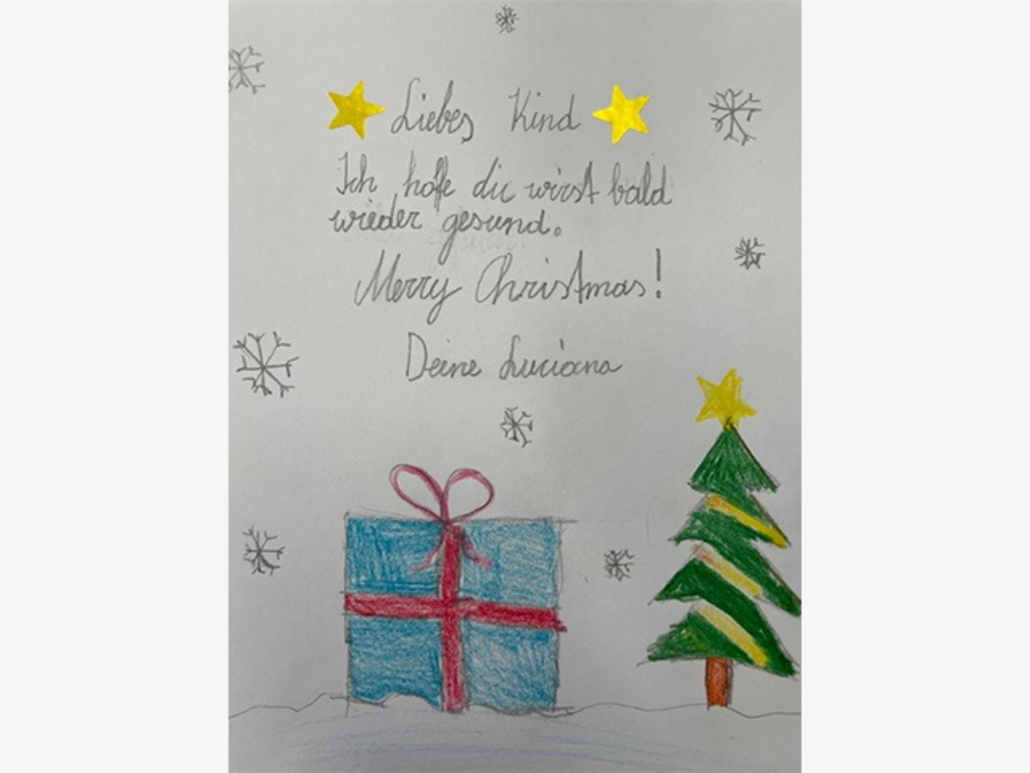 Liebes Kind
Ich hoffe du wirst bald
wieder gesund.
Merry Christmas!
Deine Luciana